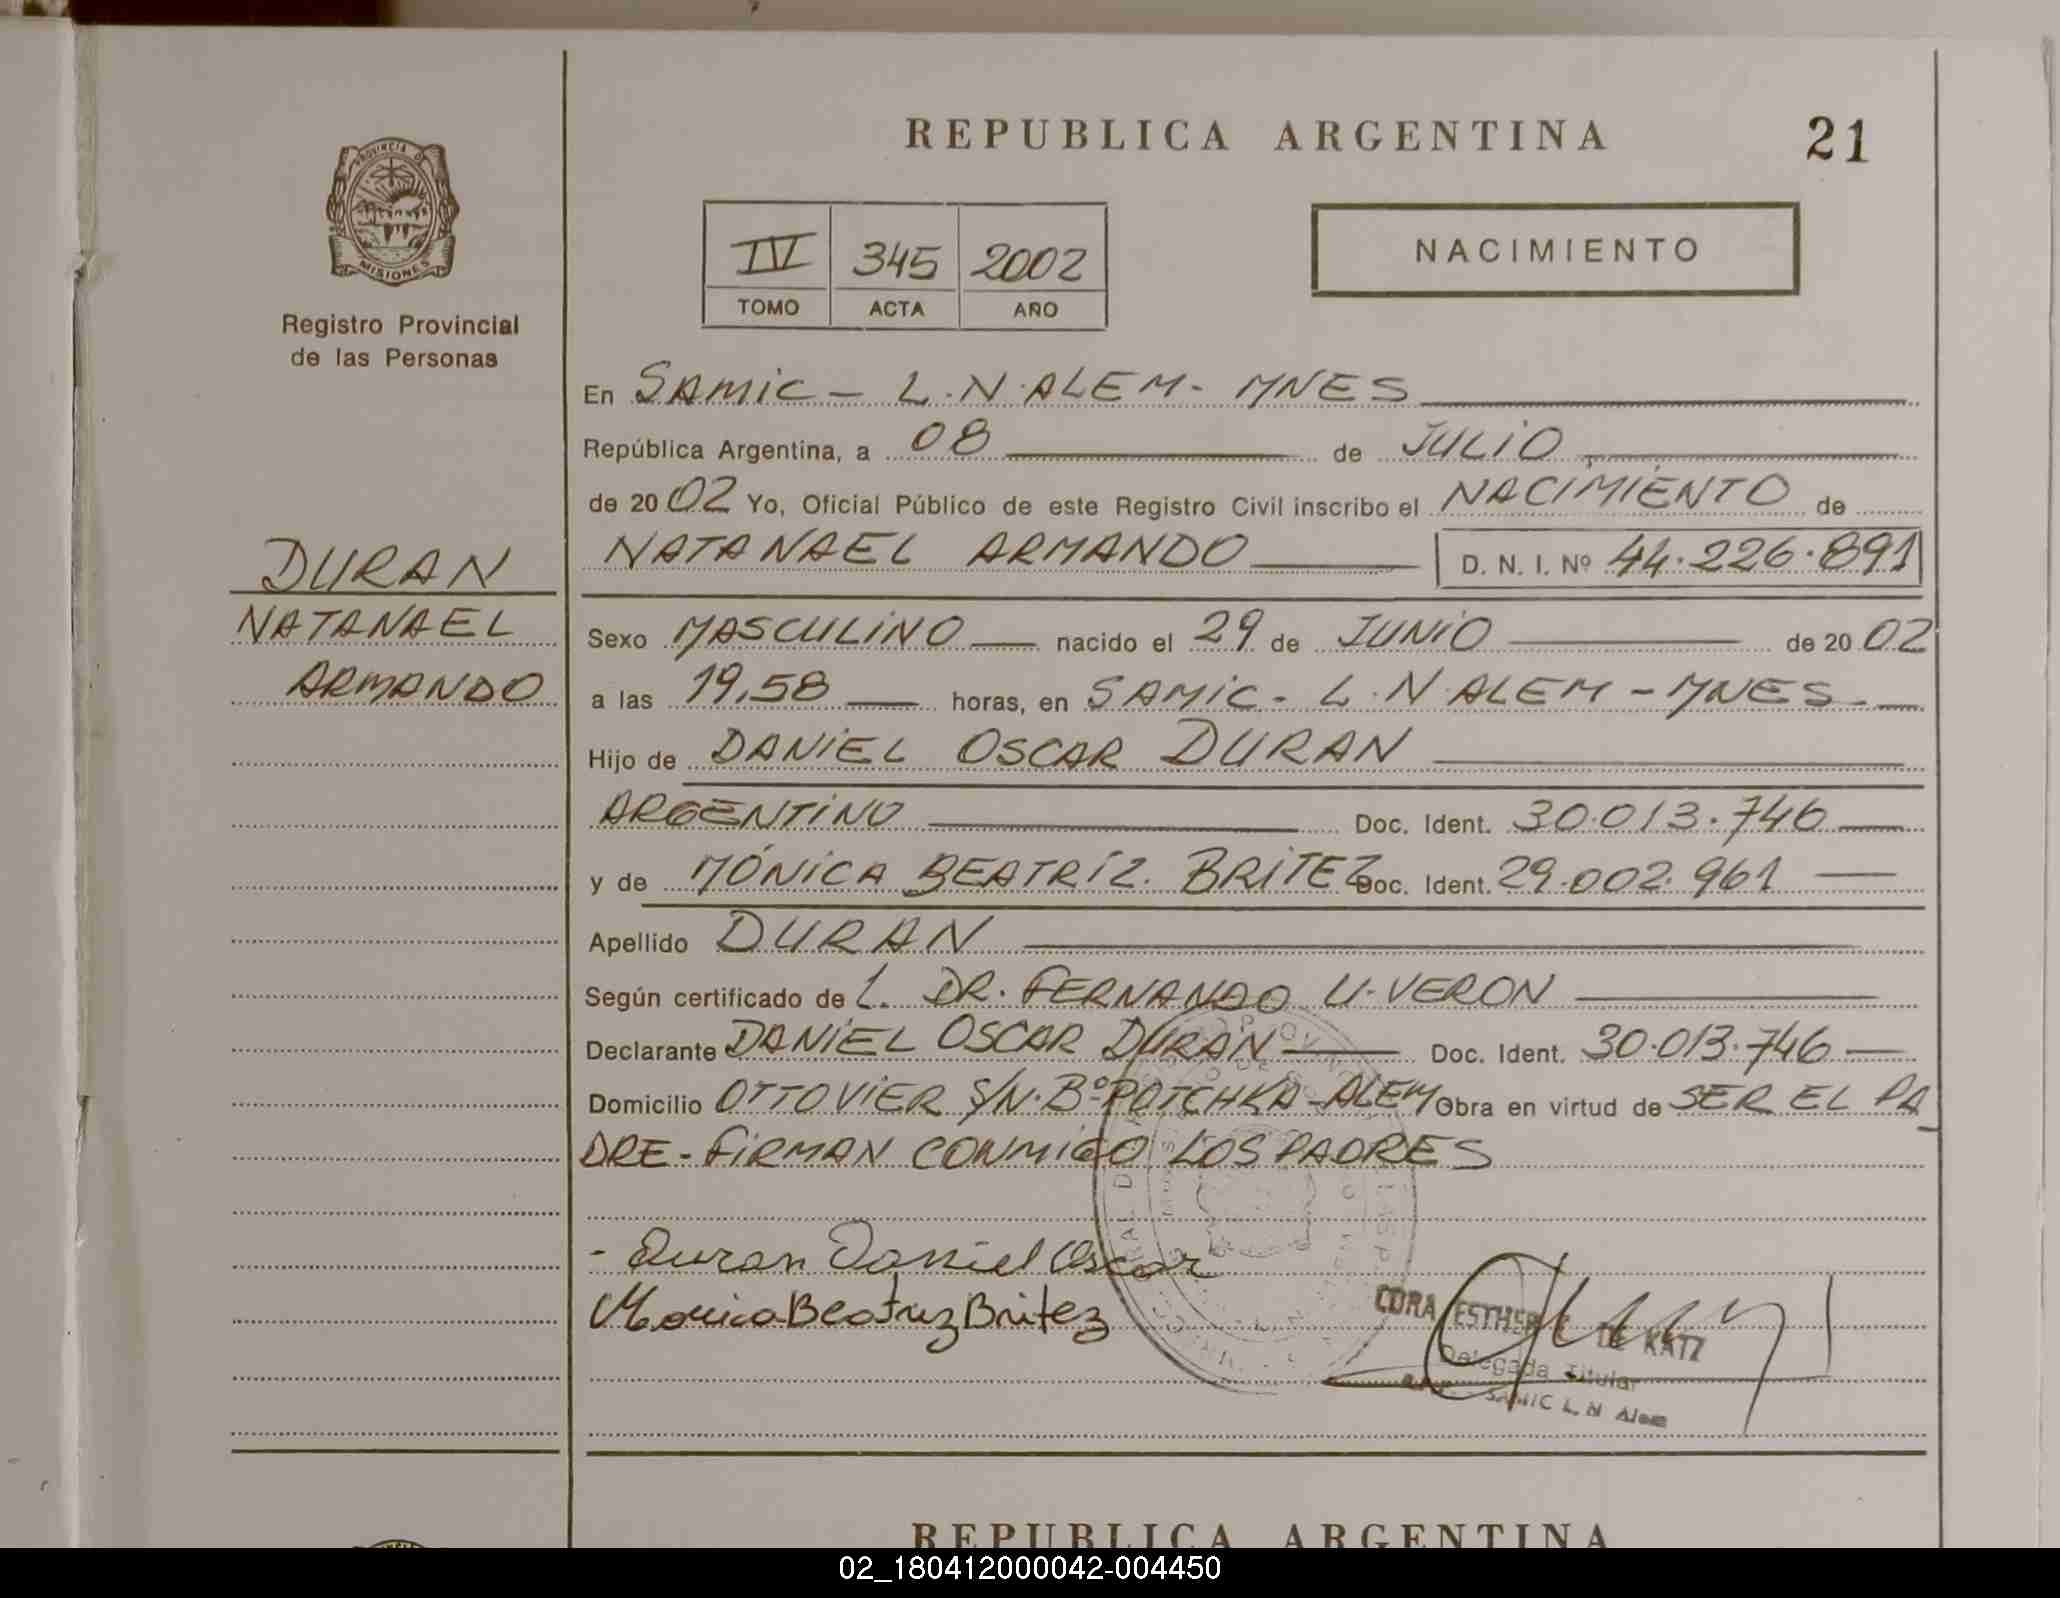 REPUBLICA ARGENTINA
21
PROVINCIA DE
MISIONES
Registro Provincial
de las Personas
IV 345 2002
TOMO ACTA AÑO
NACIMIENTO
En SAMIC - L.N.ALEM - MNES
República Argentina, a 08 de JULIO
de 2002 Yo, Oficial Público de este Registro Civil inscribo el NACIMIENTO de
NATANAEL ARMANDO D. N. I. Nº 44.226.891
DURAN
NATANAEL
ARMANDO
Sexo MASCULINO nacido el 29 de JUNIO de 2002
a las 19,58 horas, en SAMIC - L.N.ALEM - MNES
Hijo de DANIEL OSCAR DURAN
ARGENTINO Doc. Ident. 30.013.746
y de MÓNICA BEATRÍZ BRITEZ Doc. Ident. 29.002.961
Apellido DURAN
Según certificado de L. DR. FERNANDO U. VERON
Declarante DANIEL OSCAR DURAN Doc. Ident. 30.013.746
Domicilio OTTO VIER S/N. Bº POTCHKA - ALEM Obra en virtud de SER EL PA
DRE - FIRMAN CONMIGO LOS PADRES
- Duran Daniel Oscar
Monica Beatriz Britez
CORA ESTHER DE KATZ
Delegada Titular
SAMIC L. N Alem
REPUBLICA ARGENTINA
02_180412000042-004450